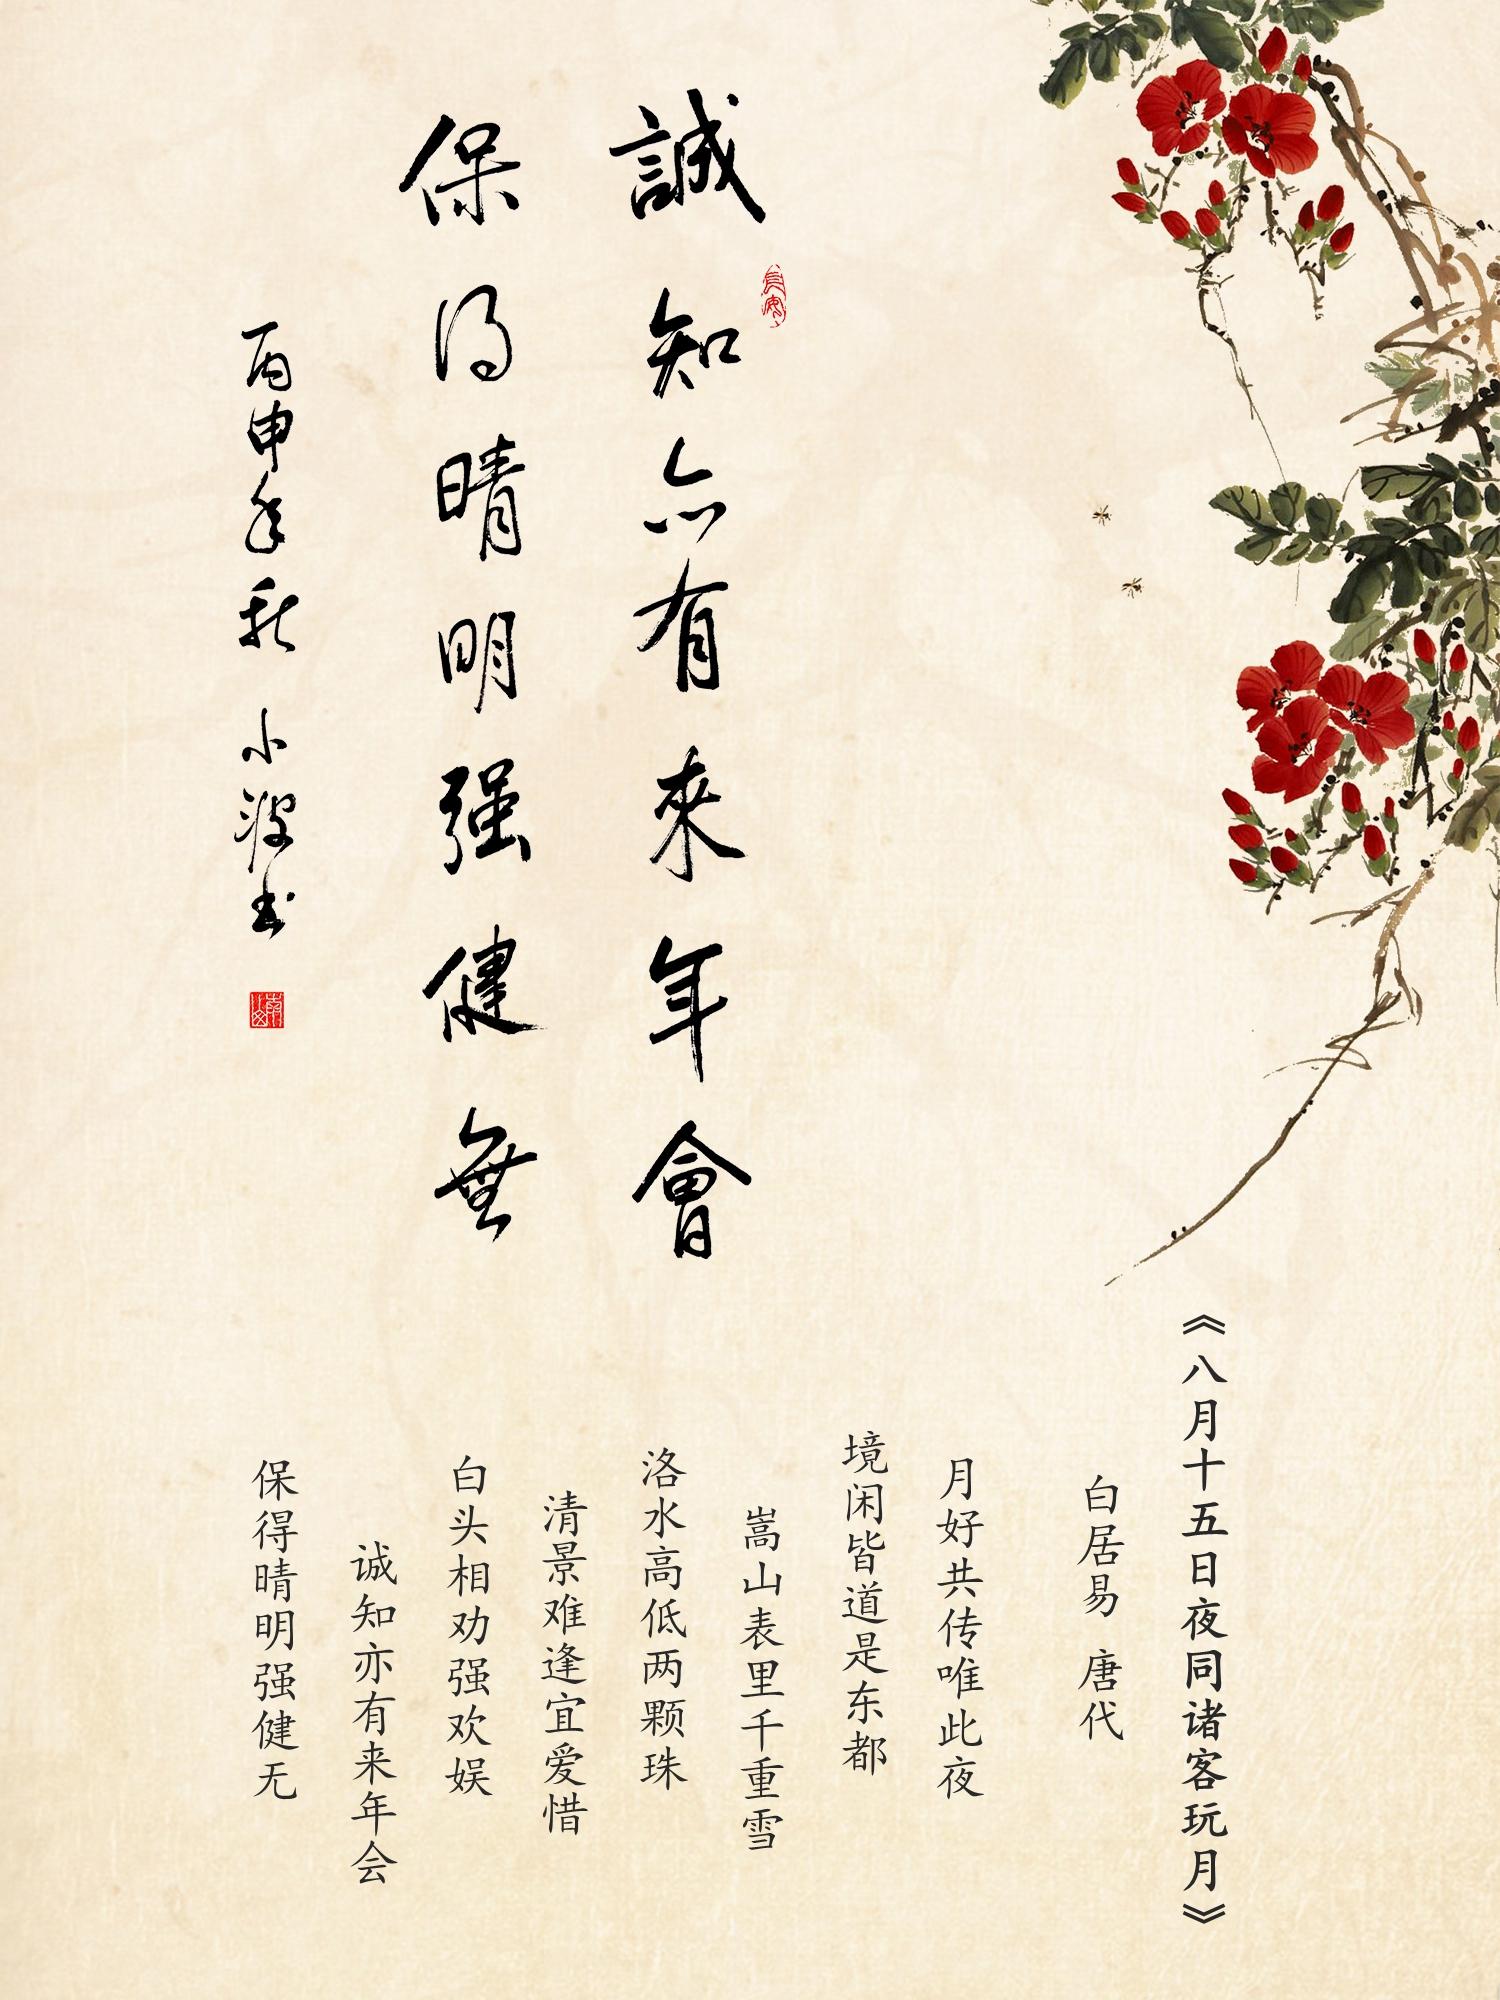 誠知亦有來年會
保得晴明强健無
丙申年秋 小波书
《八月十五日夜同诸客玩月》
白居易 唐代
月好共传唯此夜
境闲皆道是东都
嵩山表里千重雪
洛水高低两颗珠
清景难逢宜爱惜
白头相劝强欢娱
诚知亦有来年会
保得晴明强健无